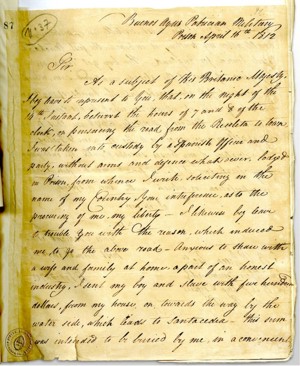 87
No 37
Buenos Ayres Patrician Military
Prison April 16th 1812
Sir
As a subject of His Britanic Majesty
I beg have to represent to You, that on the night of the
14th Instant, between the hours of 7 and 8 of the
clock, on pursuing the road, from the Recoleta to town
I was taken into custody by a Spanish Officer and
party, without arms and defence whatsoever, lodged
in Prison, from whence I write soliciting in the
name of my Country Your interference, as to the
procuring of me my liberty – I likewise beg leave
to trouble You with the reason, which induced
me to go the above road – Anxious to share with
a wife and family at home a part of an honest
industry, I sent my boy and Slave with five hundred
dollars, from my house, on towards the way by the
water side, which leads to – this sum
was intended to be buried by me, in a convenient